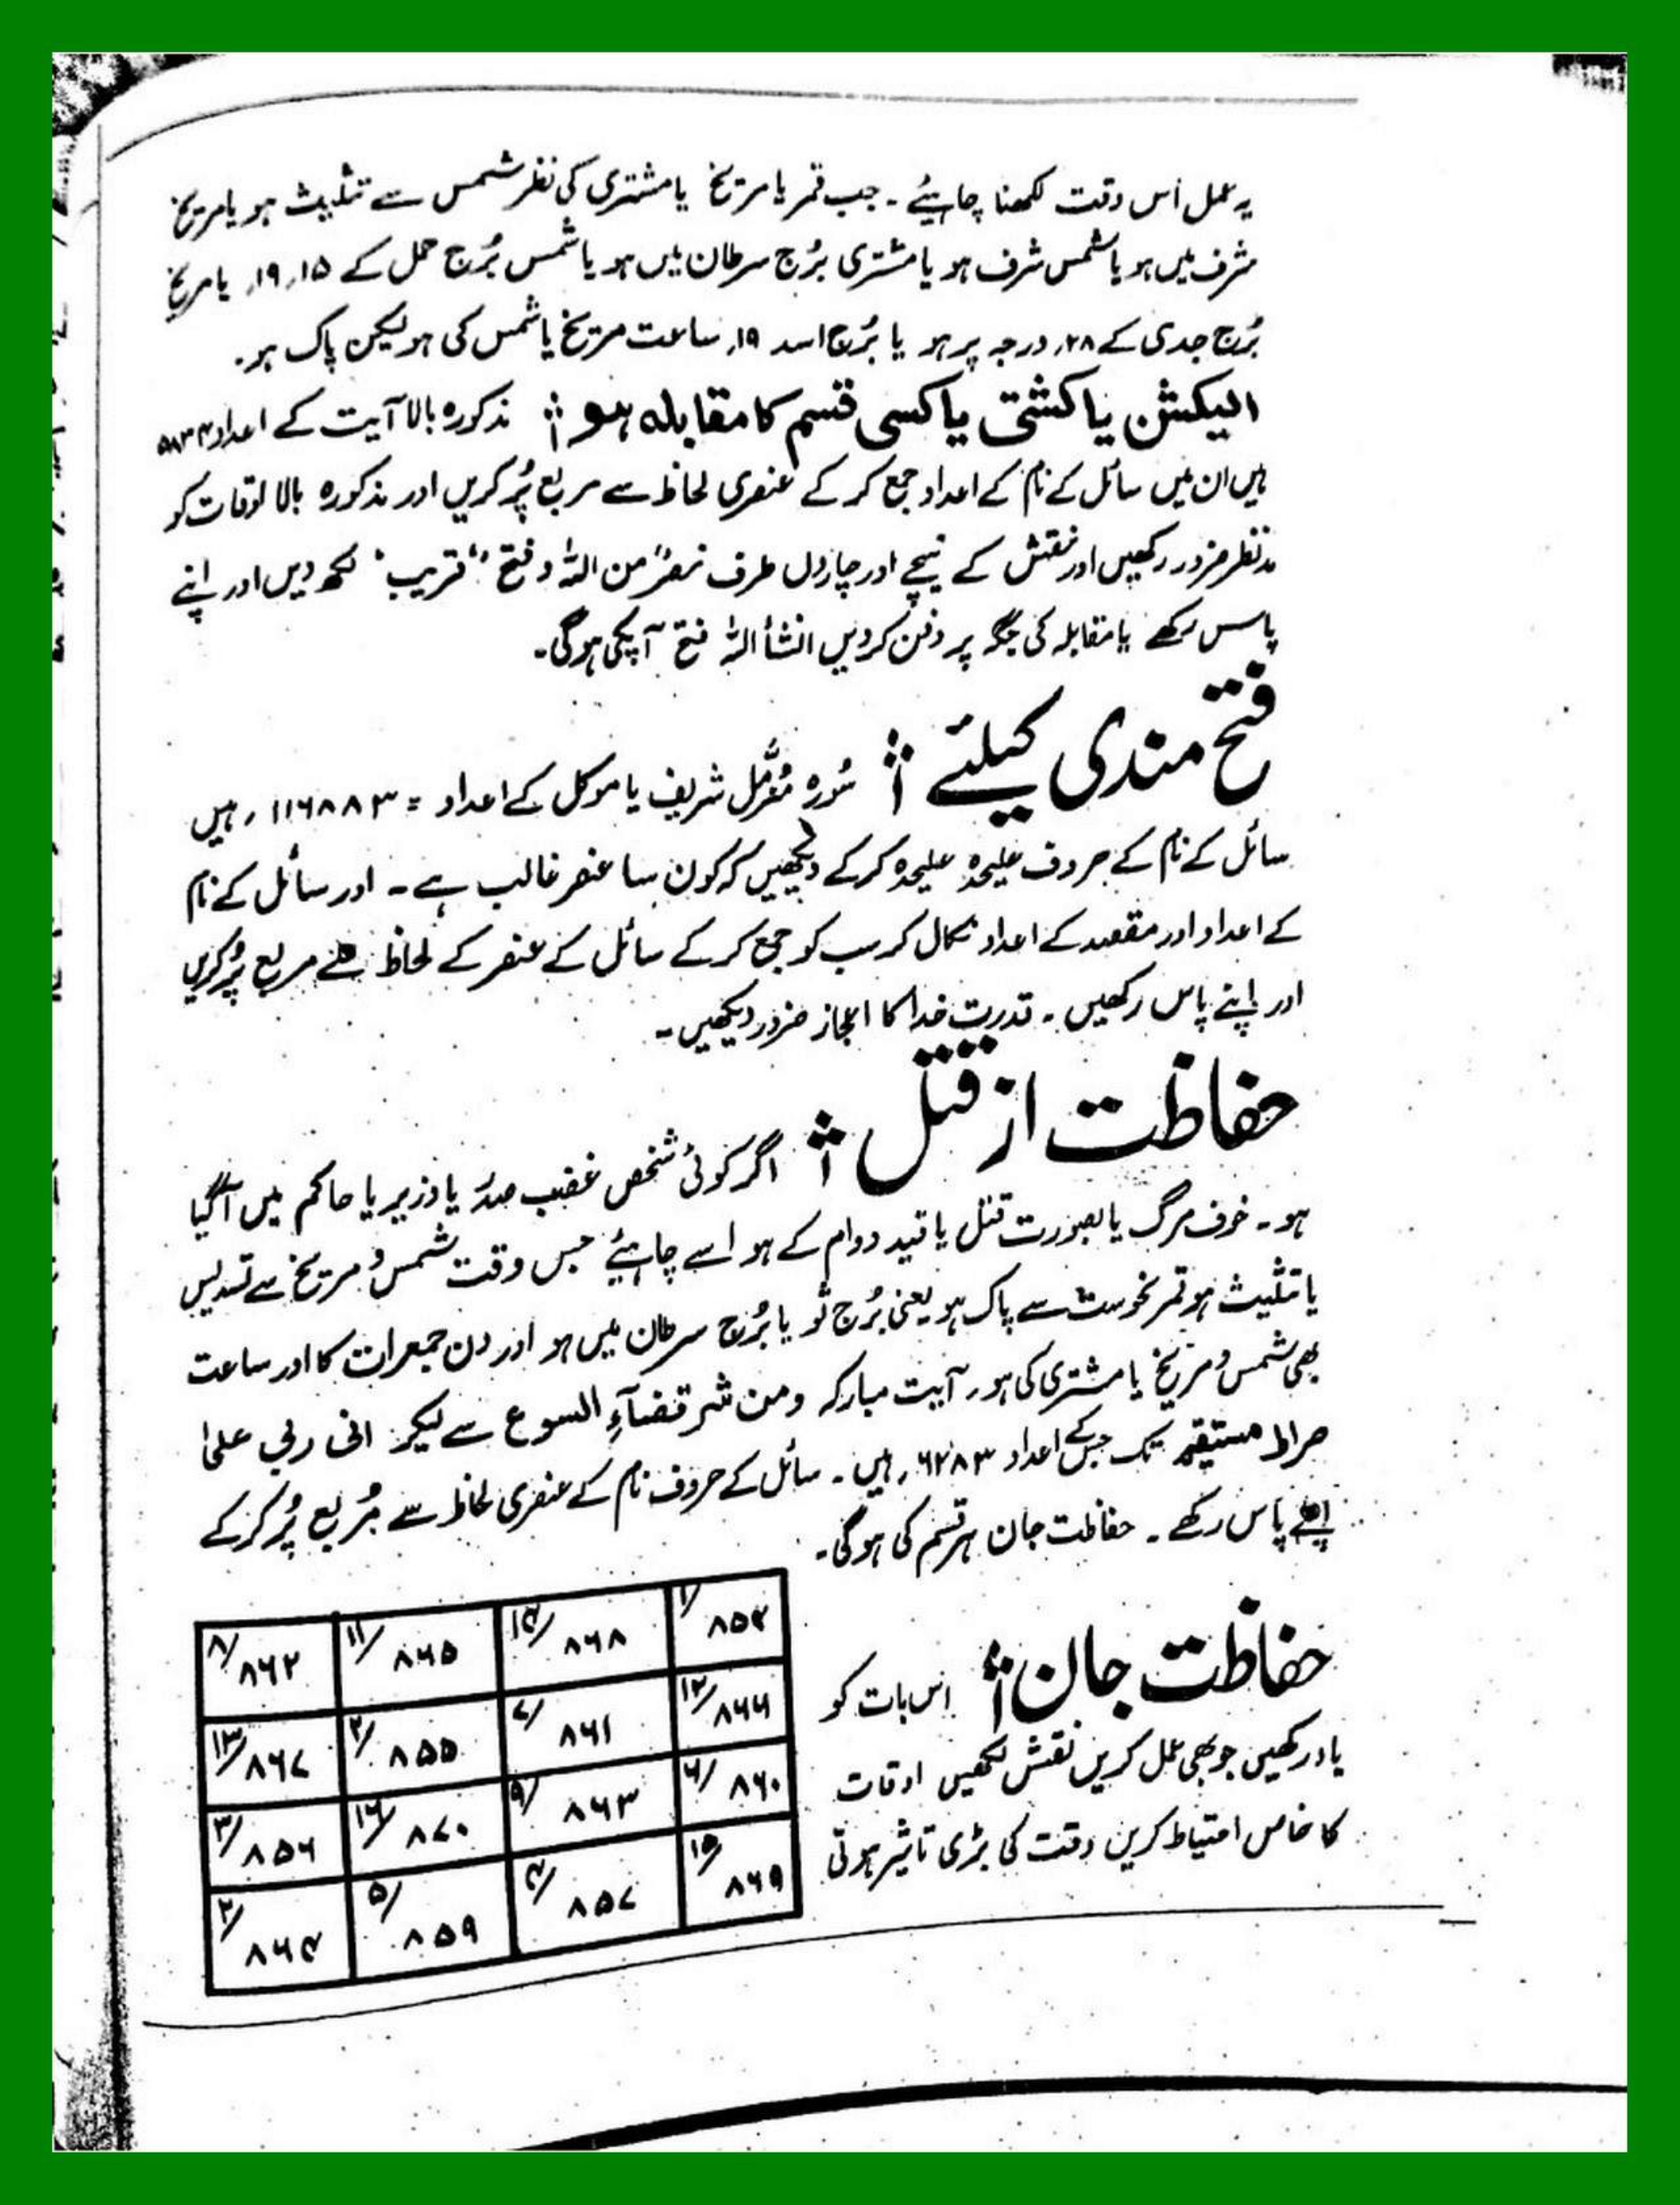 یہ عمل اس وقت لکھنا چاہیئے ۔ جب قمر یا مریخ یا مشتری کی نظر شمس سے تثلیث ہو یا مریخ
شرف میں ہو یا شمس شرف ہو یا مشتری بُرج سرطان میں ہو یا شمس بُرج حمل کے ۱۵، ۱۹، یا مریخ
بُرج جدی کے ۲۸، درجہ پر ہو یا بُرج اسد ۱۹، ساعت مریخ یا شمس کی ہو لیکن پاک ہو۔
الیکشن یا کشتی یا کسی قسم کا مقابلہ ہو مذکورہ بالا آیت کے اعداد
ہیں ان میں سائل کے نام کے اعداد جمع کر کے عنصری لحاظ سے مربع پُر کریں اور مذکورہ بالا اوقات کو
مدنظر ضرور رکھیں اور نقش کے نیچے اور چاروں طرف نصرٌ من اللہ و فتح ٌ قریب ٌ لکھ دیں اور اپنے
پاس رکھے یا مقابلہ کی جگہ پر دفن کر دیں انشأ اللہ فتح آپکی ہوگی۔
فتح مندی کیلئے سُورہ مُزمّل شریف یا موکل کے اعداد = ۱۱۶۸۸۳ ، ہیں
سائل کے نام کے حروف علیحدہ علیحدہ کر کے دیکھیں کہ کون سا عنصر غالب ہے ۔ اور سائل کے نام
کے اعداد اور مقصد کے اعداد نکال کر سب کو جمع کر کے سائل کے عنصر کے لحاظ سے مربع پُر کریں
اور اپنے پاس رکھیں ۔ قدرت خدا کا اعجاز ضرور دیکھیں ۔
حفاظت از قتل اگر کوئی شخص غضب صدر یا وزیر یا حاکم میں آ گیا
ہو ۔ خوف مرگ یا بصورت قتل یا قید دوام کے ہو اسے چاہیئے جس وقت شمس و مریخ سے تسدیس
یا تثلیث ہو قمر نحوست سے پاک ہو یعنی بُرج ثور یا بُرج سرطان میں ہو اور دن جمعرات کا اور ساعت
بھی شمس و مریخ یا مشتری کی ہو ۔ آیت مبارکہ ومن شر قضآءِ السوع سے لیکر انی ربی علیٰ
صراط مستقیم تک جس کے اعداد ۶۲۸۳ ، ہیں ۔ سائل کے حروف نام کے عنصری لحاظ سے مُربع پُر کر کے
اپنے پاس رکھے ۔ حفاظت جان ہر قسم کی ہوگی ۔
حفاظت جان اس بات کو
یاد رکھیں جو بھی عمل کریں نقش لکھیں اوقات
کا خاص احتیاط کریں وقت کی بڑی تاثیر ہوتی
۱/ ۸۵۴ ۱۴/ ۸۶۸ ۱۱/ ۸۶۵ ۸/ ۸۶۲
۱۲/ ۸۶۶ ۷/ ۸۶۱ ۲/ ۸۵۵ ۱۳/ ۸۶۷
۶/ ۸۶۰ ۹/ ۸۶۳ ۱۶/ ۸۷۰ ۳/ ۸۵۶
۱۵/ ۸۶۹ ۴/ ۸۵۷ ۵/ ۸۵۹ ۸۶۴